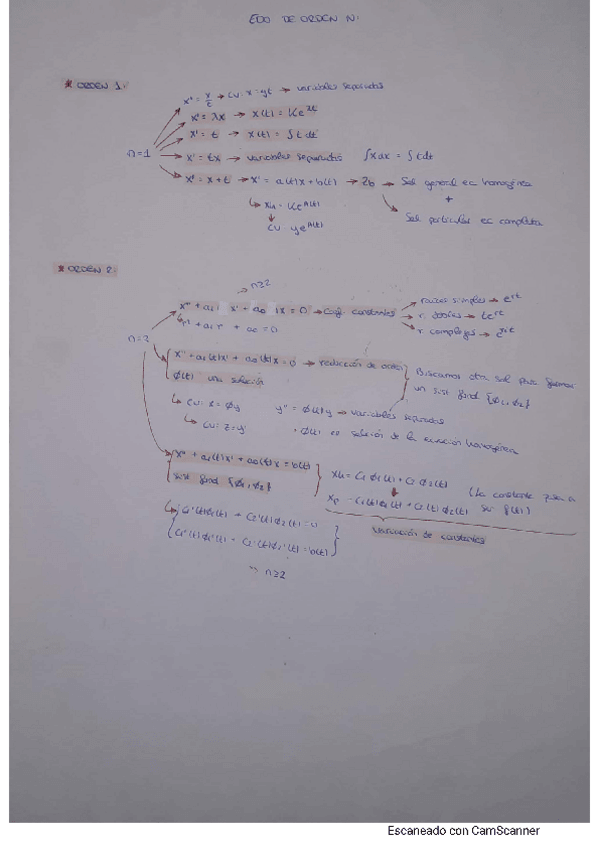 EDO DE ORDEN N:
* ORDEN 1:
n=1
x' = x/t → cv: x = yt → variables separadas
x' = λx → x(t) = Ke^λt
x' = t → x(t) = ∫t dt
x' = tx → variables separadas ∫x dx = ∫t dt
x' = x+t → x' = a(t)x + b(t) → Sol general ec homogénea
+
Sol particular ec completa
↳ xh = Ke^A(t)
↓
cv ye^A(t)
* ORDEN 2:
n=2
→ n≥2
x'' + a1 x' + a0 x = 0 → coef. constantes
raíces simples → e^rt
r. dobles → te^rt
r. complejas →
+ a1 r + a0 = 0
x'' + a1(t)x' + a0(t)x = 0 → reducción de orden
ϕ(t) una solución
Buscamos otra sol para formar
un sist fund {ϕ1, ϕ2}
↳ cv: x = ϕy
→ variables separadas
↳ cv: z = y'
ϕ(t) es solución de la ecuación homogénea
x'' + a1(t)x' + a0(t)x = b(t)
sist fund {ϕ1, ϕ2}
xh = c1 ϕ1(t) + c2 ϕ2(t)
xp = c1(t)ϕ1(t) + c2(t)ϕ2(t)
(la constante pasa a
ser f(t))
variación de constantes
c1'(t)ϕ1(t) + c2'(t)ϕ2(t) = 0
c1'(t)ϕ1'(t) + c2'(t)ϕ2'(t) = b(t)
n≥2
Escaneado con CamScanner